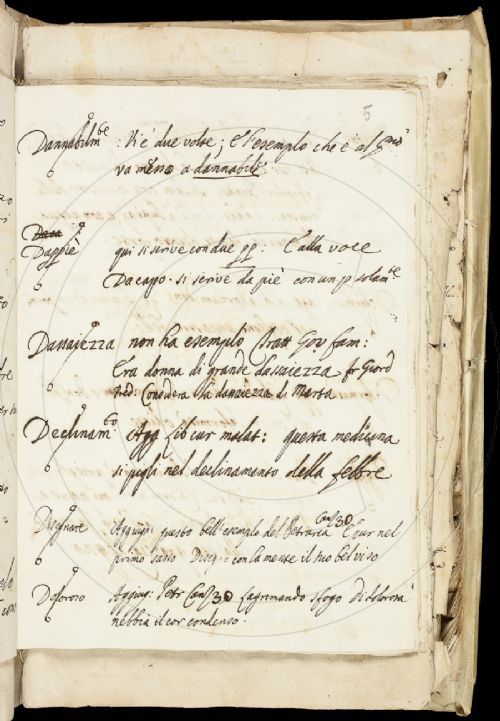 5
Dannabilm.te : Vi è due volte; e l'esemplo che è al
va messo a dannabile
Dappiè qui si scrive con due pp. E alla voce
Dacapo. si scrive da piè con un p solam.te
Dassaiezza non ha esemplo Tratt Gov fam:
Era donna di grande dassaiezza fr Giord
Pred: Considera la dassaiezza di Marta
Declinam.to Agg lib cur malat: questa medicina
si pigli nel declinamento della febre
Disegnare Aggiugn: questo bell'esemplo del Petrarca Canz 30 E pur nel
primo sasso Disegno con la mente il suo bel viso
Doloroso Aggiug: Petr Canz 30 Lagrimando sfogo Di dolorosa
nebbia il cor condenso.